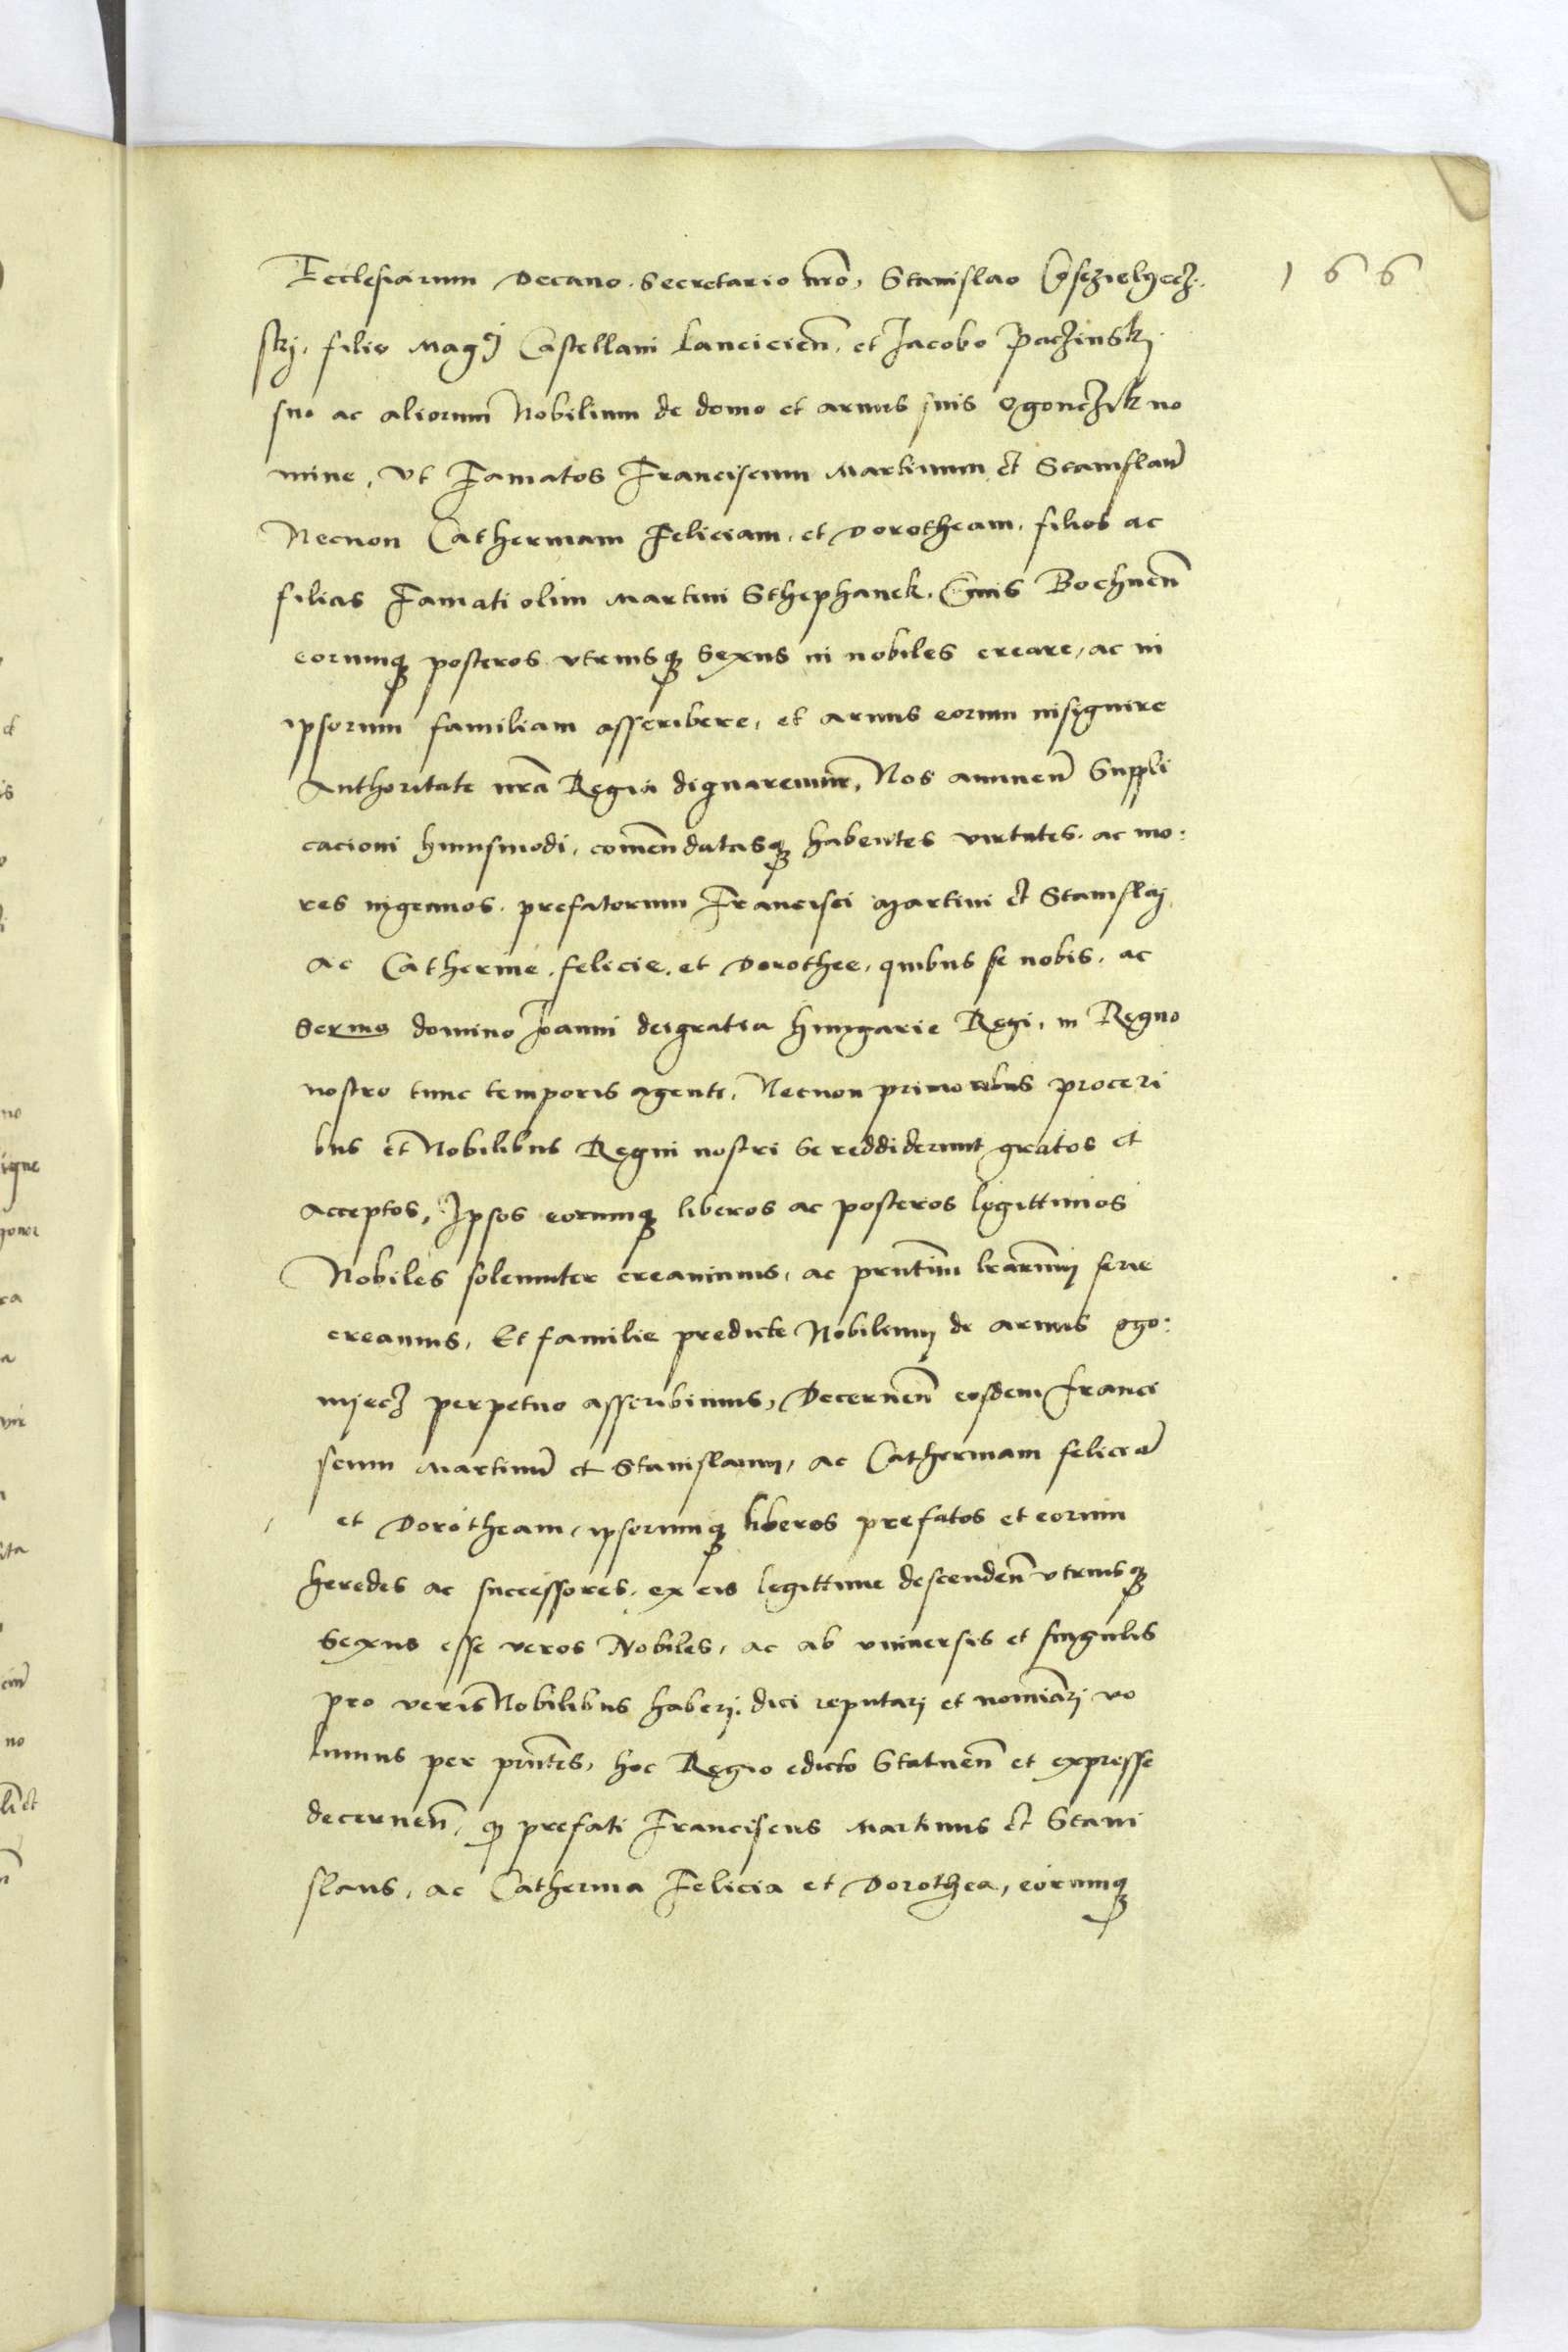 166
Ecclesiarum Decano. Secretario nro, Stanislao
skj, filio Magci Castellani Lancicien, et Jacobo Paczinskj
suo ac aliorum Nobilium de domo et armis suis Ogonczik no
mine, Vt Famatos Franciscum Martinum et Stanislaum
Necnon Catherinam Feliciam, et Dorotheam, filios ac
filias Famati olim Martini Sthephanek, Ciuis Bochnen
eorumq posteros vtriusq sexus in nobiles creare, ac in
ipsorum familiam asscribere, et armis eorum insignire
Authoritate nra Regia dignaremur, Nos annuen Suppli
cacioni huiusmodi, comendatasq habentes virtutes. ac mo:
res ingenuos. prefatorum Francisci Martini et Stanislaj,
Ac Catherine, felicie, et Dorothee, quibus se nobis, ac
Sermo domino Joanni dei gratia Hungarie Regi, in Regno
nostro tunc temporis agenti, Necnon primoribus proceri
bus et Nobilibus Regni nostri se reddiderunt gratos et
acceptos, Ipsos eorumq liberos ac posteros legittimos
Nobiles solenniter creauimus, ac pntium lrarum serie
creamus, Et familie predicte Nobilium de armis Ogo:
nijecz perpetuo asscribimus, Decernen eosdem Franci
scum Martinum et Stanislaum, ac Catherinam feliciam
et Dorotheam, ipsorumq liberos prefatos et eorum
heredes ac successores, ex eis legittime descenden vtriusq
sexus esse veros Nobiles, ac ab vniuersis et singulis
pro veris Nobilibus haberj. dici reputarj et nominarj vo
lumus per pntes, hoc Regio edicto Statuen et expresse
decernen, q prefati Franciscus Martinus et Stani
slaus, ac Catherina Felicia et Dorothea, eorumq